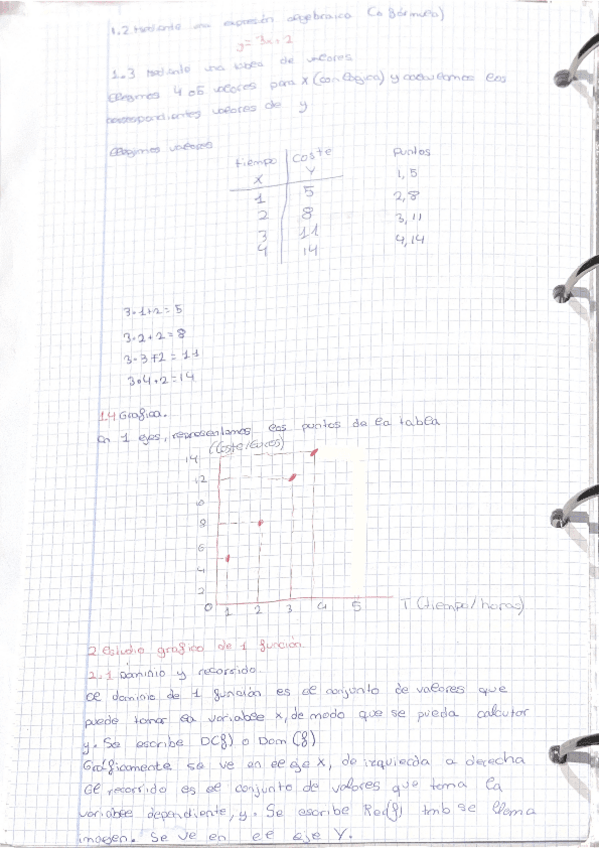 1.2 Mediante una expresión algebraica (o fórmula)
y = 3x + 2
1.3 Mediante una tabla de valores
Elegimos 4 o 5 valores para x (con lógica) y calculamos los
correspondientes valores de y
Elegimos valores
tiempo coste Puntos
X Y
1 5 1,5
2 8 2,8
3 11 3,11
4 14 4,14
3·1+2=5
3·2+2=8
3·3+2=11
3·4+2=14
1.4 Grafica.
En 1 ejes, representamos los puntos de la tabla
(Coste/euros)
14
12
10
8
6
4
2
0 1 2 3 4 5 T (tiempo/horas)
2 Estudio grafico de 1 función
2.1 Dominio y recorrido
El dominio de 1 función es el conjunto de valores que
puede tomar la variable x, de modo que se pueda calcular
y. Se escribe D(f) o Dom (f)
Gráficamente se ve en el eje X, de izquierda a derecha
El recorrido es el conjunto de valores que toma la
variable dependiente, y. Se escribe Rec(f) tmb se llama
imagen. Se ve en el eje Y.